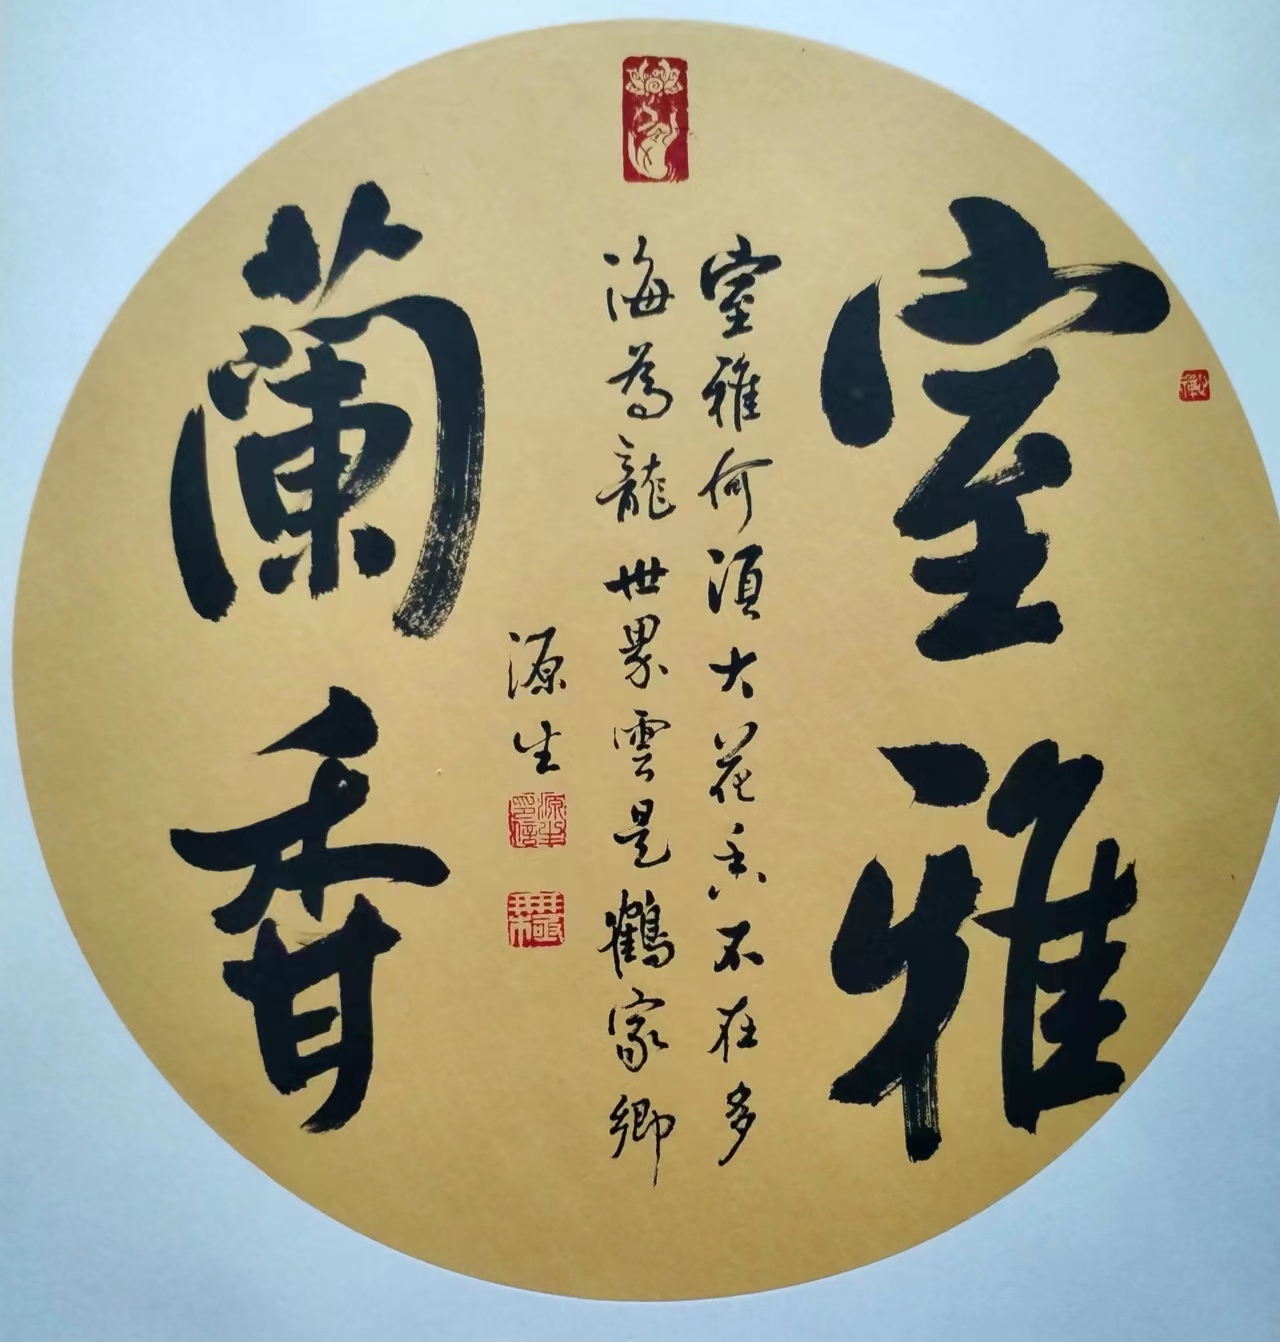 室雅
室雅何須大花香不在多
海為龍世界雲是鶴家鄉
源生
源生印信
蘭香